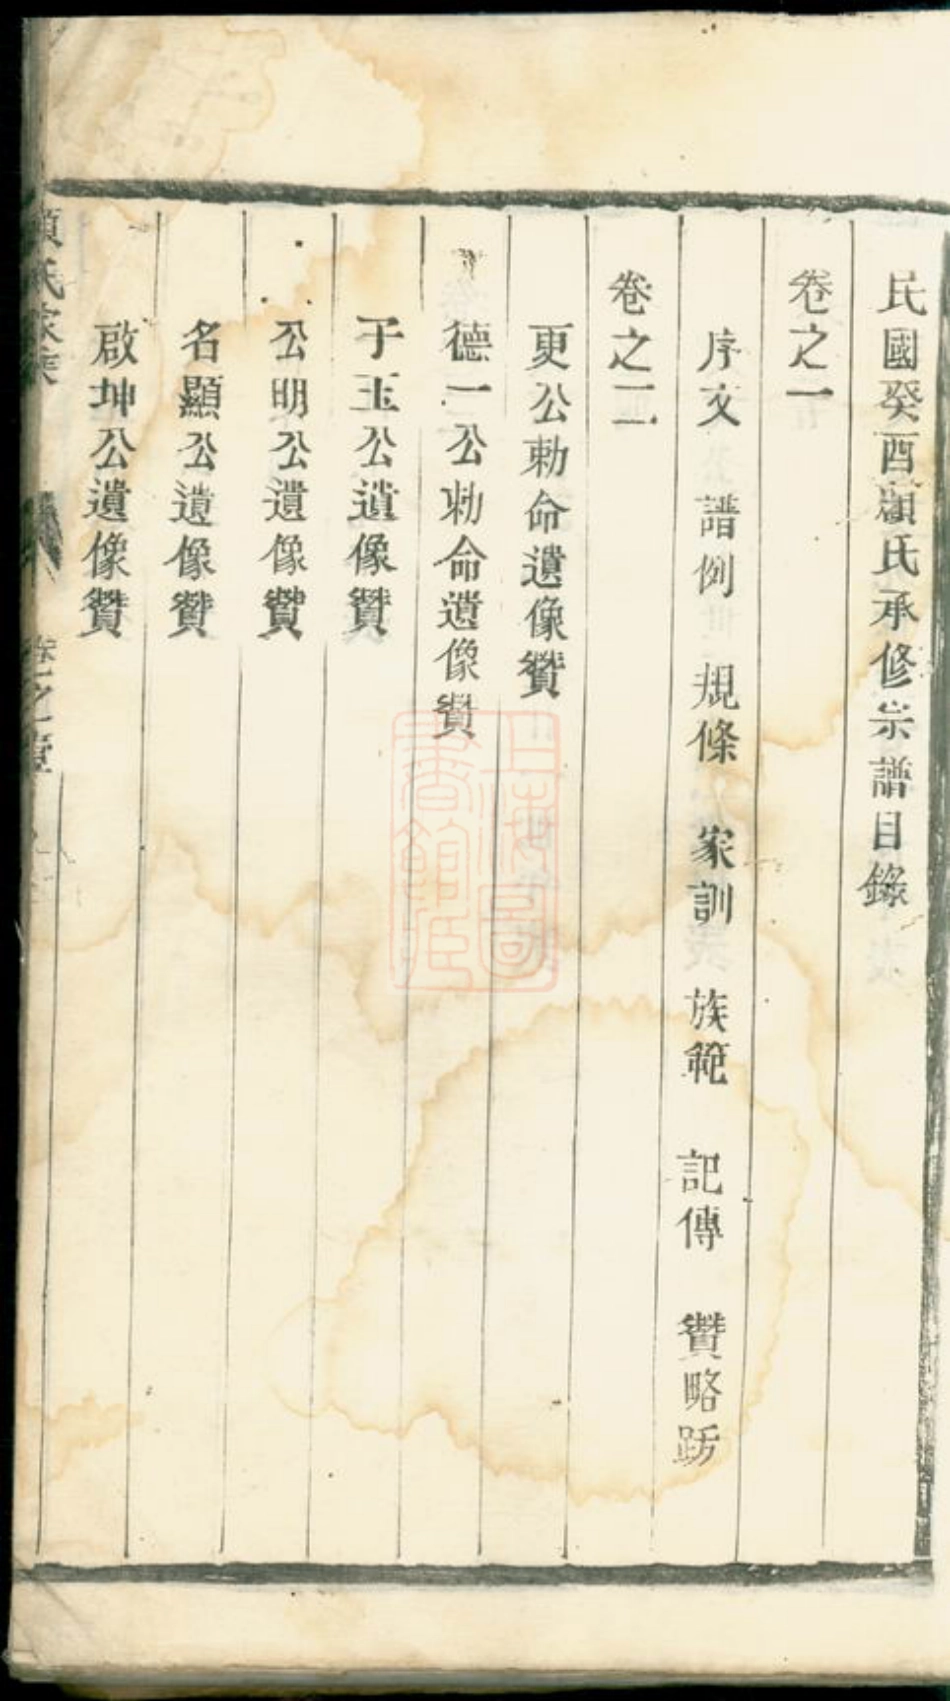 民國癸酉顧氏承修宗譜目錄
卷之一
序文 譜例 規條 家訓 族範 記傳 贊略跋
卷之二
更公勅命遺像贊
德一公勅命遺像贊
于玉公遺像贊
公明公遺像贊
名顯公遺像贊
啟坤公遺像贊
氏家
卷之壹